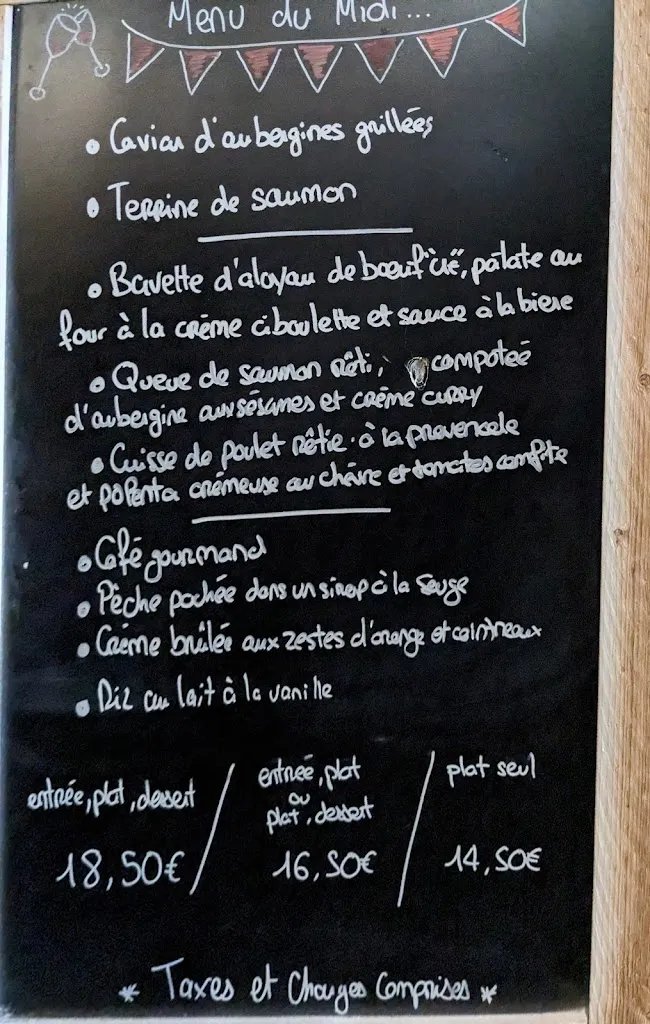 Menu du Midi...
• Caviar d'aubergines grillées
• Terrine de saumon
• Bavette d'aloyau de boeuf "cié", patate au
four à la crème ciboulette et sauce à la biere
• Queue de saumon rôti, compoteé
d'aubergine aux sésames et crème curry
• Cuisse de poulet rôtie à la provencale
et polenta crémeuse au chèvre et tomates confite
• Café gourmand
• Pêche pochée dans un sirop à la sauge
• Crème brûlée aux zestes d'orange et cointreaux
• Riz au lait à la vanille
entrée, plat, dessert / entrée, plat / plat seul
ou
plat, dessert
18,50€ / 16,50€ / 14,50€
* Taxes et Charges Comprises *